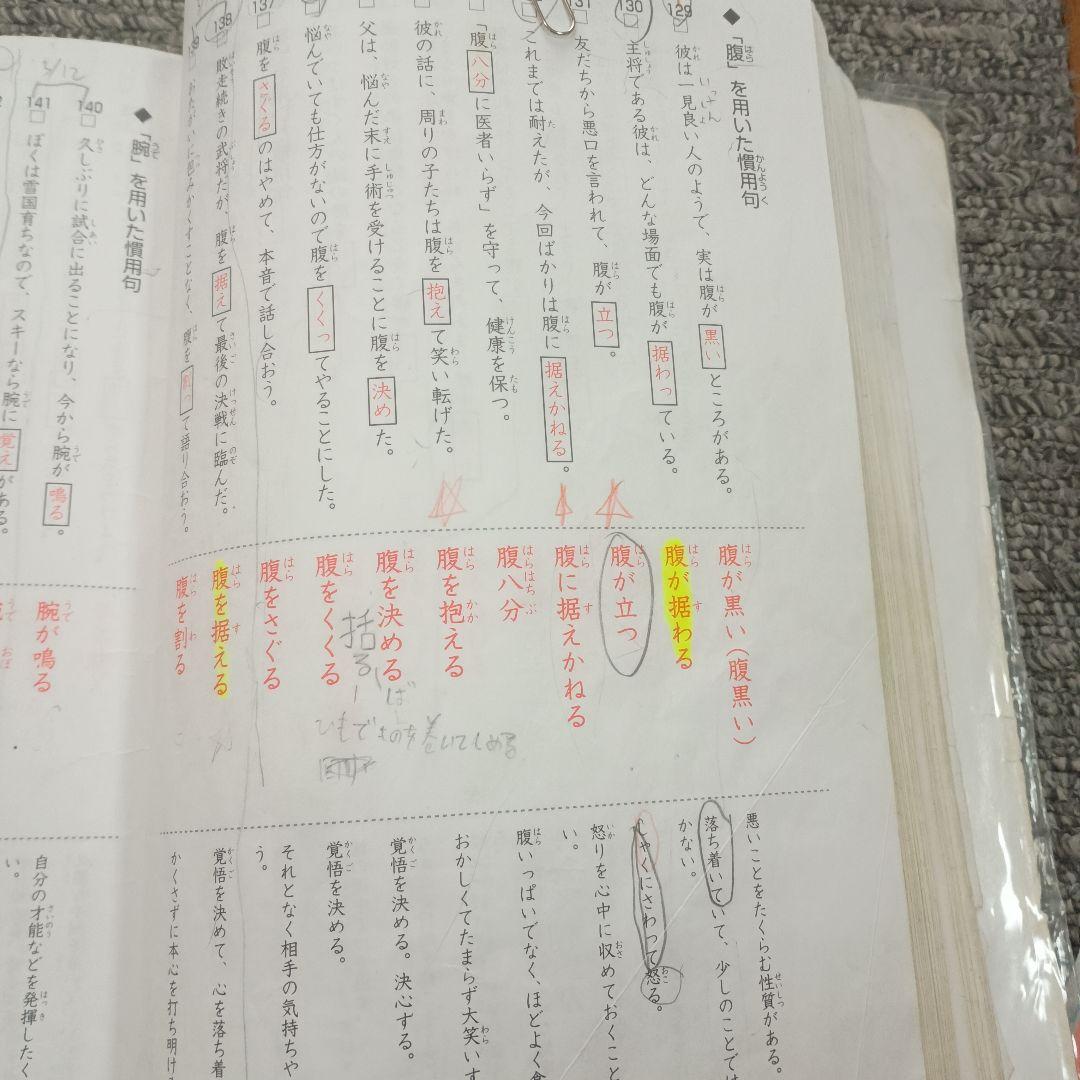 ◆「腹」を用いた慣用句
129
彼は一見良い人のようで、実は腹が黒いところがある。
130
主将である彼は、どんな場面でも腹が据わっている。
131
友だちから悪口を言われて、腹が立つ。
これまでは耐えたが、今回ばかりは腹に据えかねる。
「腹八分に医者いらず」を守って、健康を保つ。
彼の話に、周りの子たちは腹を抱えて笑い転げた。
父は、悩んだ末に手術を受けることに腹を決めた。
悩んでいても仕方がないので腹をくくってやることにした。
137
腹をさぐるのはやめて、本音で話し合おう。
138
敗走続きの武将だが、腹を据えて最後の決戦に臨んだ。
おたがいに包みかくすことなく、腹を割って語り合おう。
◆「腕」を用いた慣用句
3/12
140
久しぶりに試合に出ることになり、今から腕が鳴る。
141
ぼくは雪国育ちなので、スキーなら腕に覚えがある。
腹が黒い(腹黒い)
腹が据わる
腹が立つ
腹に据えかねる
腹八分
腹を抱える
腹を決める
腹をくくる
括る
ひもでものを巻いてしめる
腹をさぐる
腹を据える
腹を割る
腕が鳴る
悪いことをたくらむ性質がある。
落ち着いていて、少しのことでは
かない。
しゃくにさわって怒る。
怒りを心中に収めておくこと
い。
腹いっぱいでなく、ほどよく食
おかしくてたまらず大笑いす
覚悟を決める。決心する。
覚悟を決める。
それとなく相手の気持ちや
う。
覚悟を決めて、心を落ち着
かくさずに本心を打ち明け
自分の才能などを発揮したく
い。